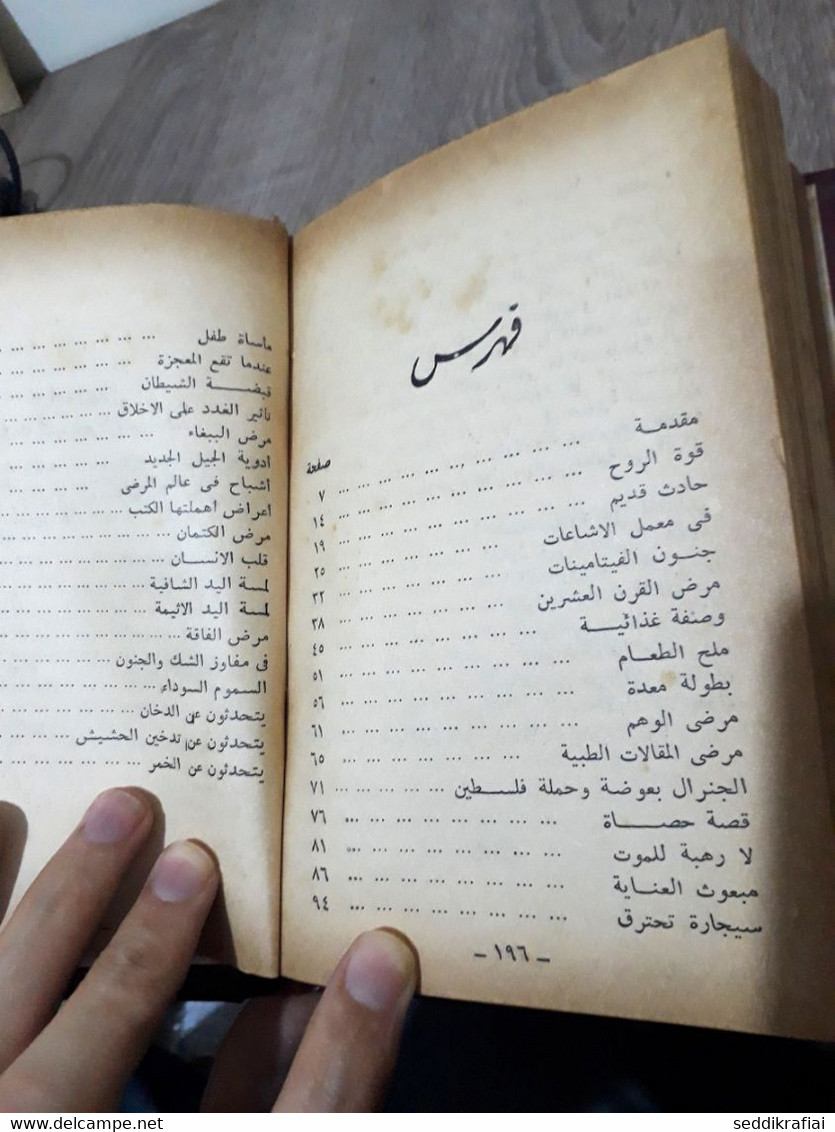 فهرس
صفحة
مقدمة ... ... ... ... ... ... ... ... ٧
قوة الروح ... ... ... ... ... ... ... ... ١٤
حادث قديم ... ... ... ... ... ... ... ... ١٩
فى معمل الاشاعات ... ... ... ... ... ... ٢٥
جنون الفيتامينات ... ... ... ... ... ... ٣٢
مرض القرن العشرين ... ... ... ... ... ... ٣٨
وصنفة غذائية ... ... ... ... ... ... ... ٤٥
ملح الطعام ... ... ... ... ... ... ... ... ٥١
بطولة معدة ... ... ... ... ... ... ... ... ٥٦
مرضى الوهم ... ... ... ... ... ... ... ... ٦١
مرضى المقالات الطبية ... ... ... ... ... ... ٦٥
الجنرال بعوضة وحملة فلسطين ... ... ... ... ٧١
قصة حصاة ... ... ... ... ... ... ... ... ٧٦
لا رهبة للموت ... ... ... ... ... ... ... ... ٨١
مبعوث العناية ... ... ... ... ... ... ... ... ٨٦
سيجارة تحترق ... ... ... ... ... ... ... ... ٩٤
– ١٩٦ –
مأساة طفل ... ... ... ... ... ... ...
عندما تقع المعجزة ... ... ... ... ... ...
قبضة الشيطان ... ... ... ... ... ...
تاثير الغدد على الاخلاق ... ... ... ... ...
مرض الببغاء ... ... ... ... ... ... ...
ادوية الجيل الجديد ... ... ... ... ... ...
اشباح فى عالم المرضى ... ... ... ... ...
اعراض اهملتها الكتب ... ... ... ... ...
مرض الكتمان ... ... ... ... ... ... ...
قلب الانسان ... ... ... ... ... ... ...
لمسة اليد الشافية ... ... ... ... ... ...
لمسة اليد الاثيمة ... ... ... ... ... ...
مرض الفاقة ... ... ... ... ... ... ...
فى مفاوز الشك والجنون ... ... ... ... ...
السموم السوداء ... ... ... ... ... ...
يتحدثون عن الدخان ... ... ... ... ...
يتحدثون عن تدخين الحشيش ... ... ... ...
يتحدثون عن الخمر ... ... ... ... ...
www.delcampe.net
seddikrafiai